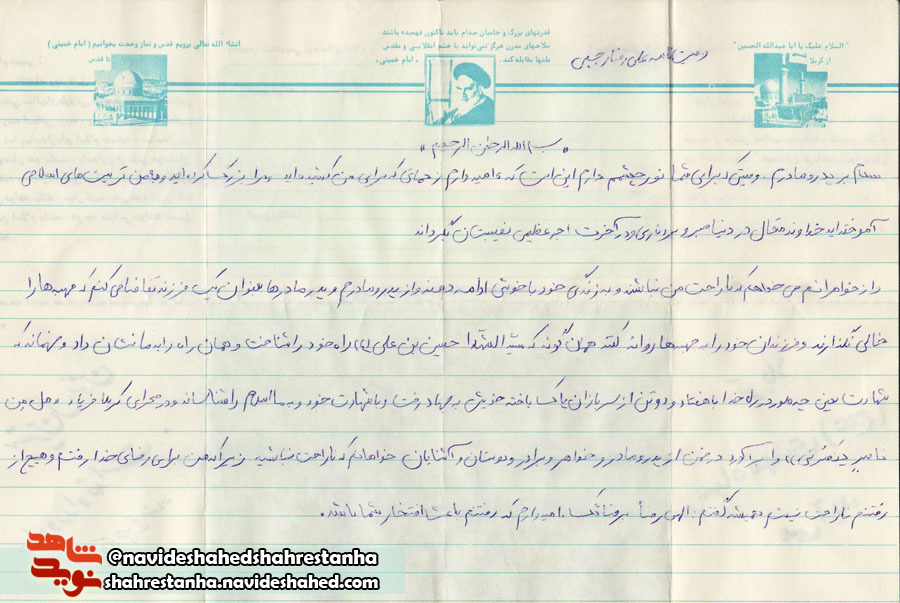 انشاء الله تعالی برویم قدس و نماز وحدت بخوانیم ( امام خمینی )
تا قدس
قدرتهای بزرگ و حامیان صدام باید تاکنون فهمیده باشند
سلاحهای مدرن هرگز نمی‌تواند با خشم انقلابی و مقدس
ملتها مقابله کند . « امام خمینی »
" السلام علیک یا ابا عبدالله الحسین "
از کربلا
وصیت نامه علی رجبی
« بسم الله الرحمن الرحیم »
سلام بر پدر و مادرم . وصیتی که برای شما نور چشمم دارم این است که امیدوارم زحماتی که برای من کشیده اید و مرا بزرگ کرده اید و به من تربیت های اسلامی
آموخته اید خداوند متعال در دنیا صبر و بردباری و در آخرت اجر عظیمی نصیبتان بگرداند
و از خواهرانم می خواهم که ناراحت من نباشند و به زندگی خود با خوشی ادامه دهند و از پدر و مادرم و پدر مادرها بعنوان یک فرزند تقاضا می کنم که جبهه ها را
خالی نگذارند و فرزندان خود را به جبهه ها روانه کنند همان گونه که سید الشهدا حسین بن علی (ع) راه خود را شناخت و همان راه را به ما نشان داد و همانا که
شهادت در راه خدا با هفتاد و دو تن از سربازان پاکباخته خویش به جهاد رفت و با شهادت خود به ما اسلام را شناساند و در صحرای کربلا فریاد « هل من
ناصر ینصرنی » را سر آورد در ضمن از پدر و مادر و خواهر و برادر و دوستان و آشنایان خواهانم که ناراحت نباشید زیرا که من برای رضای خدا رفتم و هیچ از
رفتنم ناراحت نیستم و همیشه گفتم : الهی رضاً برضائک . امیدوارم که رفتنم باعث افتخار شما باشد .
شاهد
نوید
@navideshahedshahrestanha
shahrestanha.navideshahed.com